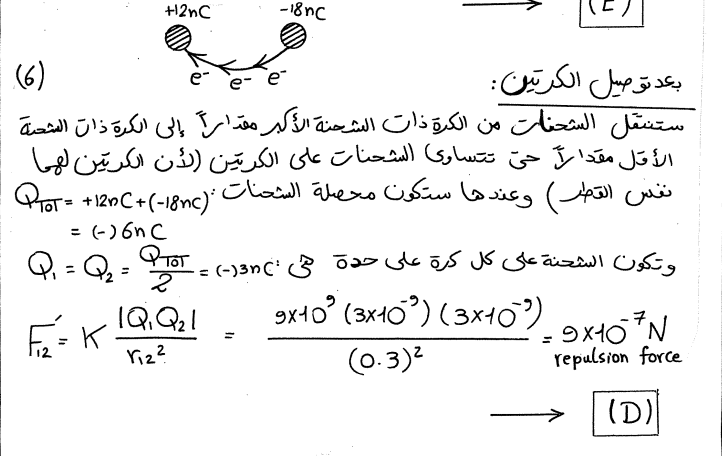 (E)
+12nC -18nC
e- e- e-
(6)
بعد توصيل الكرتين:
ستنتقل الشحنات من الكرة ذات الشحنة الأكبر مقداراً إلى الكرة ذات الشحنة
الأقل مقداراً حتى تتساوى الشحنات على الكرتين (لأن الكرتين لهما
نفس القطر) وعندها ستكون محصلة الشحنات: Q_TOT = +12nC+(-18nC)
= (-)6nC
وتكون الشحنة على كل كرة على حدة هي: Q₁ = Q₂ = Q_TOT/2 = (-)3nC
F₁₂′ = K |Q₁Q₂|/r₁₂² = 9×10⁹ (3×10⁻⁹) (3×10⁻⁹)/(0.3)² = 9×10⁻⁷N
repulsion force
(D)